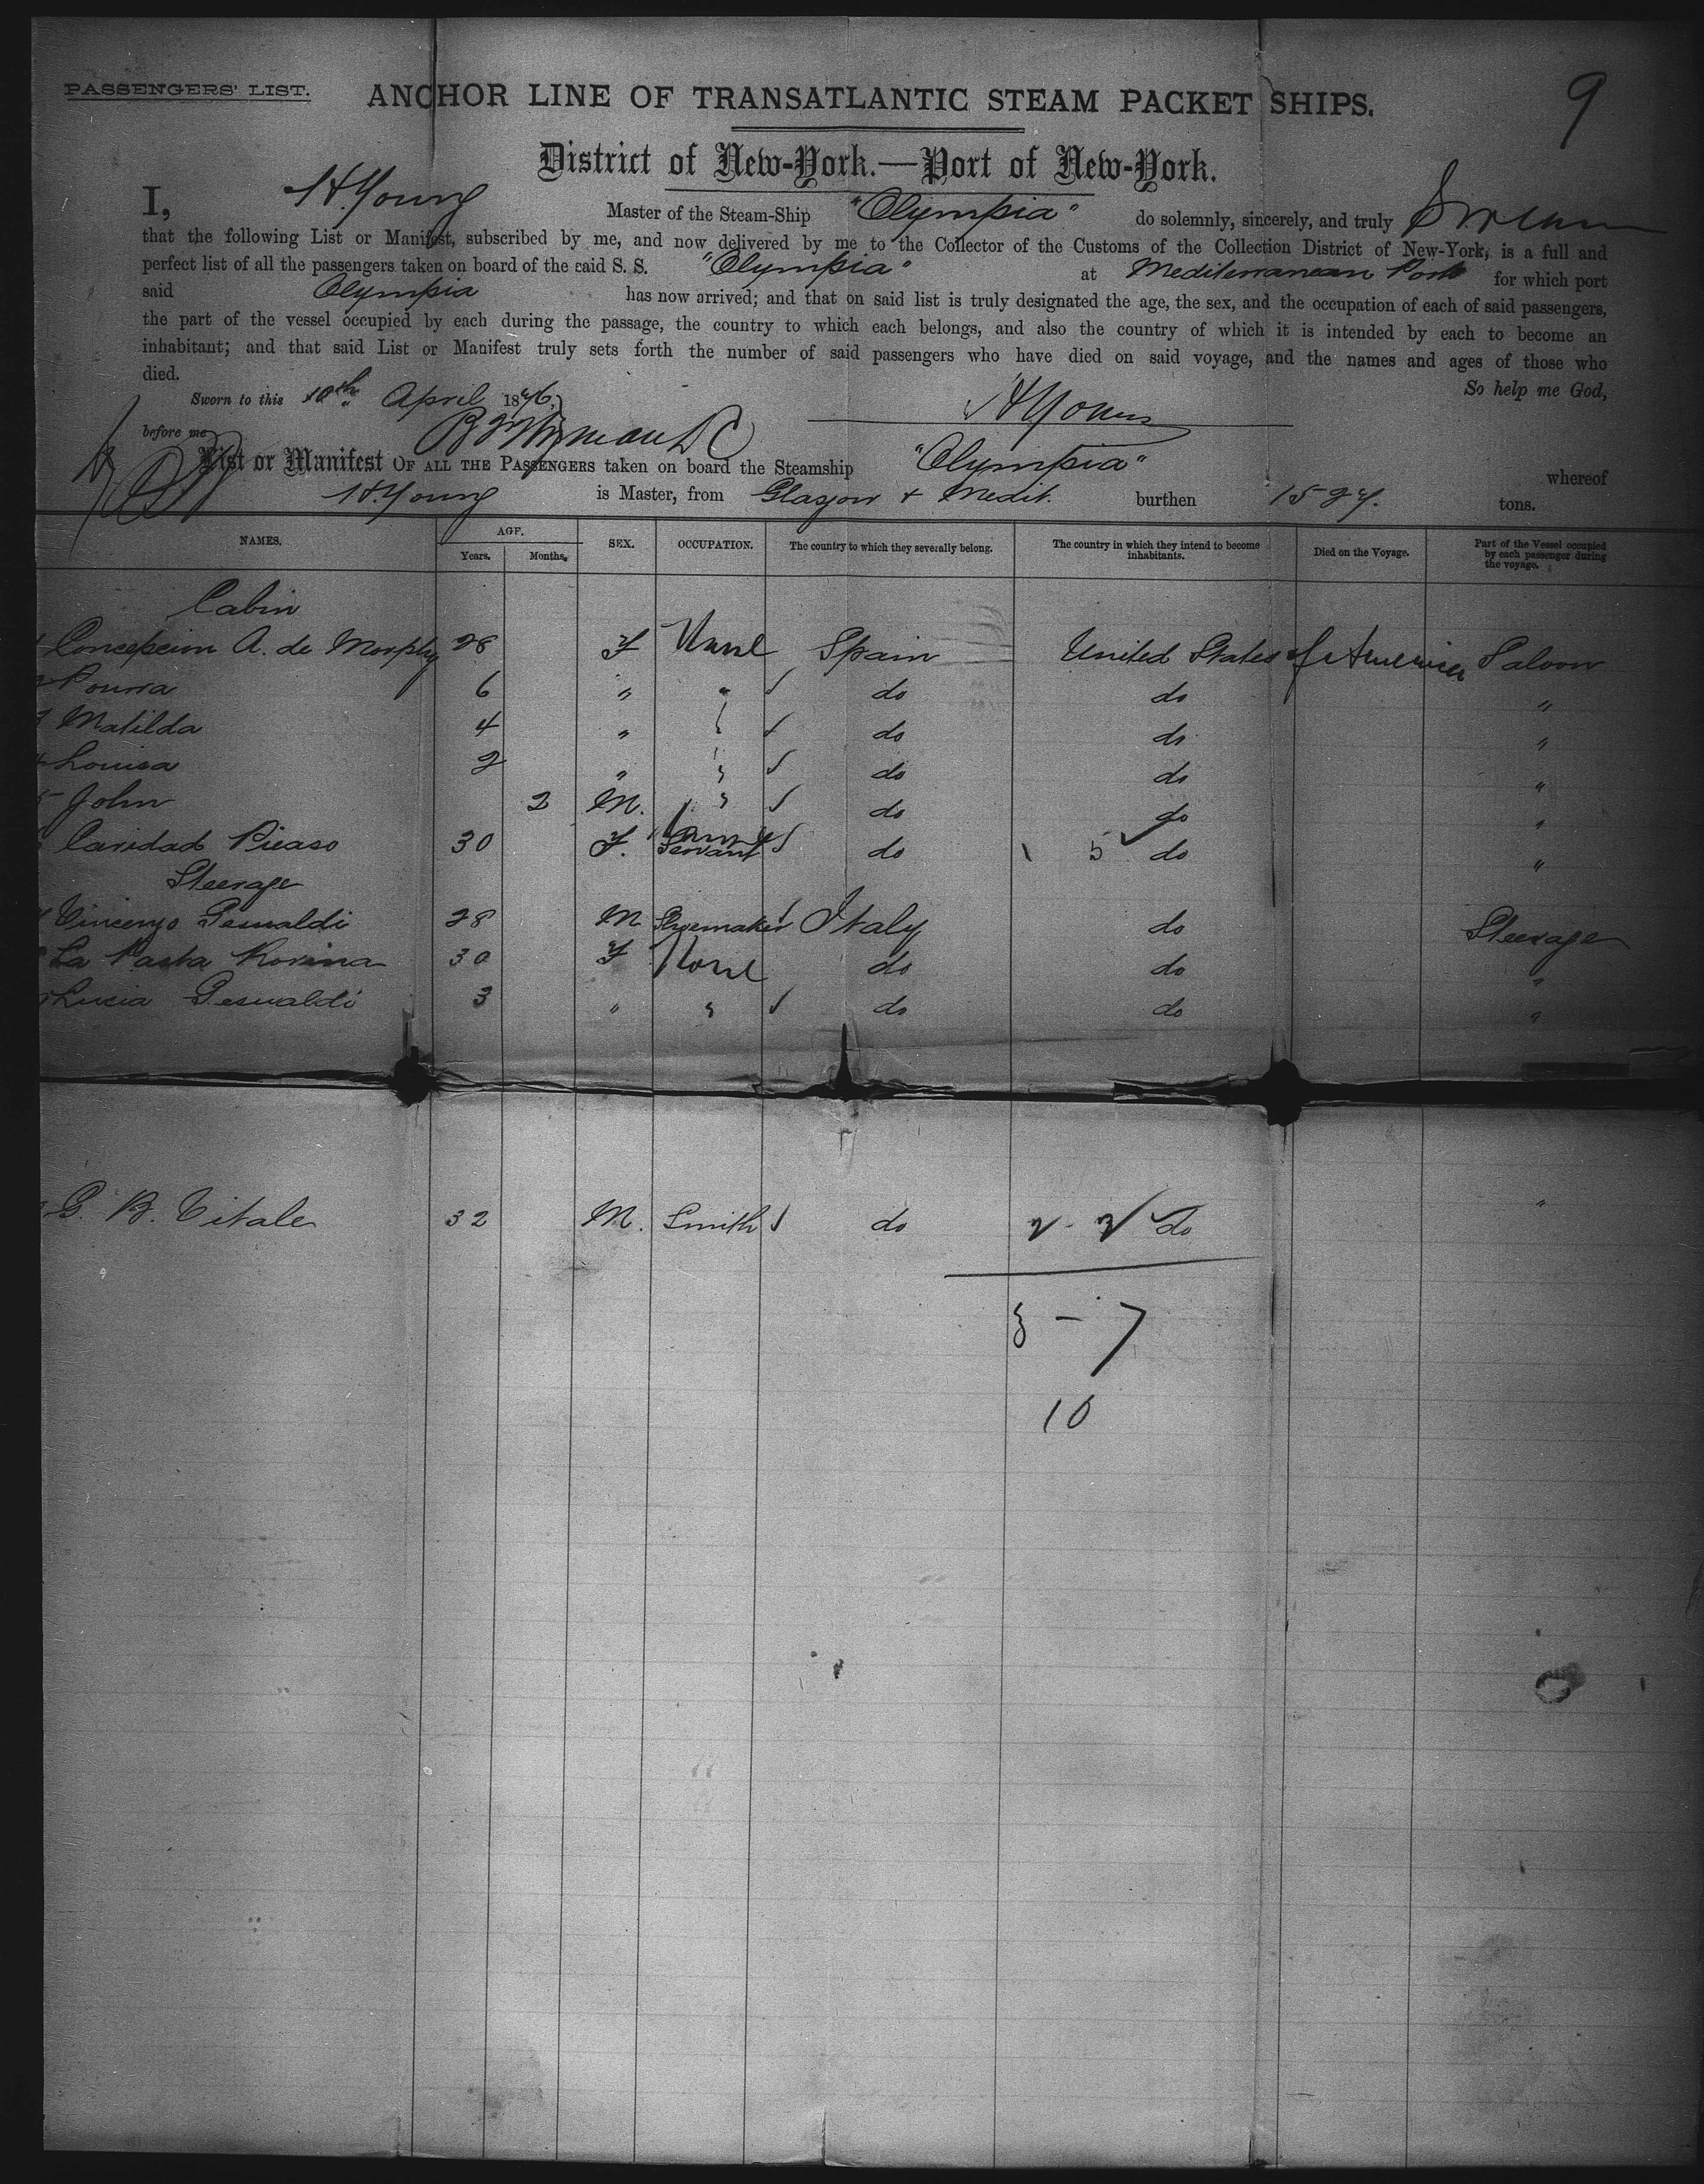 PASSENGERS' LIST.
ANCHOR LINE OF TRANSATLANTIC STEAM PACKET SHIPS.
9
District of New-York.—Port of New-York.
I, H. Young Master of the Steam-Ship "Olympia" do solemnly, sincerely, and truly Swear
that the following List or Manifest, subscribed by me, and now delivered by me to the Collector of the Customs of the Collection District of New-York, is a full and
perfect list of all the passengers taken on board of the said S. S. "Olympia" at Mediterranean Ports for which port
said Olympia has now arrived; and that on said list is truly designated the age, the sex, and the occupation of each of said passengers,
the part of the vessel occupied by each during the passage, the country to which each belongs, and also the country of which it is intended by each to become an
inhabitant; and that said List or Manifest truly sets forth the number of said passengers who have died on said voyage, and the names and ages of those who
died. So help me God,
Sworn to this 10th April 1876,
H Young
before me
List or Manifest OF ALL THE PASSENGERS taken on board the Steamship "Olympia" whereof
H. Young is Master, from Glasgow & Medit. burthen tons.
NAMES. AGE. Years. Months. SEX. OCCUPATION. The country to which they severally belong. The country in which they intend to become inhabitants. Died on the Voyage. Part of the Vessel occupied by each passenger during the voyage.
Cabin
1 Concepcion A. de Morphy 28 F None Spain United States of America Saloon
6 " " do do "
3 Matilda 4 " do do "
4 Louisa 2 " " do do "
5 John 2 M. " do do "
Caridad Picaso 30 F. Servant do 1 5 do "
Steerage
Vincenzo Gesualdi 28 M Shoemaker Italy do Steerage
La Pasta Rosina 30 F None do do "
Lucia Gesualdi 3 " " do do "
G. B. Vitale 32 M. Smith do 2 - 2 do "
3 - 7
10